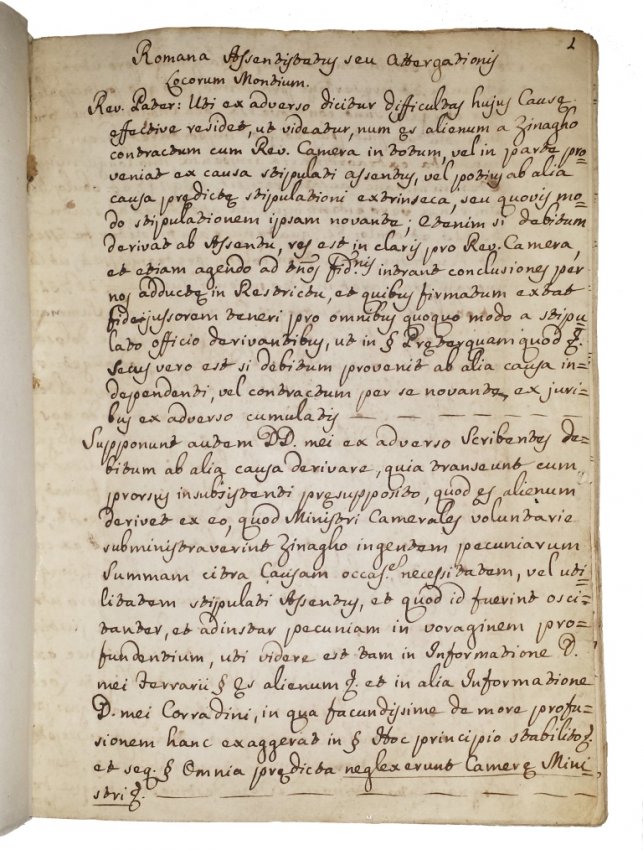 1
Romana Assentistatus seu Attergationis
Locorum Montium.
Rev. Pater: Uti ex adverso dicitur difficultas hujus Causę
effective residet, ut videatur, num ęs alienum a Zinagho
contractum cum Rev. Camera in totum, vel in parte pro=
veniat ex causa stipulati assentus, vel potius ab alia
causa prędictę stipulationi extrinseca, seu quovis mo=
do stipulationem ipsam novante; Etenim si debitum
derivat ab Assentu, res est in claris pro Rev. Camera,
et etiam agendo ad tnõs fid.nis intrant conclusiones per
nos adductę in Restrictu, et quibus firmatum extat
fidejussorem teneri pro omnibus quoquo modo a stipu=
lato officio derivantibus, ut in § Pręterquam quod
Secus vero est si debitum provenit ab alia causa in=
dependenti, vel contractum per se novante, ex juri=
bus ex adverso cumulatis
Supponunt autem DD. mei ex adverso Scribentes de=
bitum ab alia causa derivare, quia transeunt cum
prorsus insubsistenti pręsupposito, quod ęs alienum
derivet ex eo, quod Ministri Camerales voluntarie
subministraverint Zinagho ingentem pecuniarum
Summam citra Causam occas.e necessitatem, vel uti=
litatem stipulati Assentus, et quod id fuerint osci=
tanter, et ad instar pecuniam in voraginem pro=
fundentium, uti videre est tam in Informatione D.
mei Ferrarii § Ęs alienum et in alia Informatione
D. mei Corradini, in qua facundissime de more profu=
sionem hanc exaggerat in § Hoc principio stabilito
et seq. § Omnia prędicta neglexerunt Camerę Mini=
stri